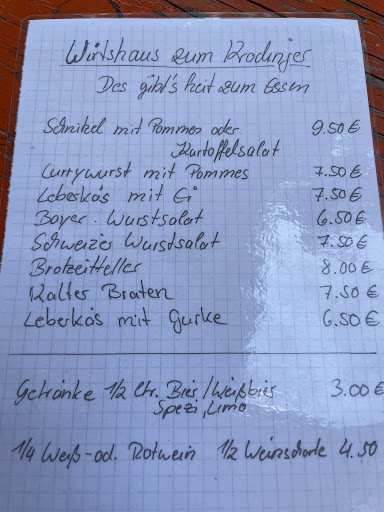 Wirtshaus zum Krodinger
Des gibt's heit zum Essen
Schnitzel mit Pommes oder 9.50 €
Kartoffelsalat
Currywurst mit Pommes 7.50 €
Leberkäs mit Ei 7.50 €
Bayer. Wurstsalat 6.50 €
Schweizer Wurstsalat 7.50 €
Brotzeitteller 8.00 €
Kalter Braten 7.50 €
Leberkäs mit Gurke 6.50 €
Getränke 1/2 Ltr. Bier/Weißbier 3.00 €
Spezi, Limo
1/4 Weiß- od. Rotwein 1/2 Weinschorle 4.50